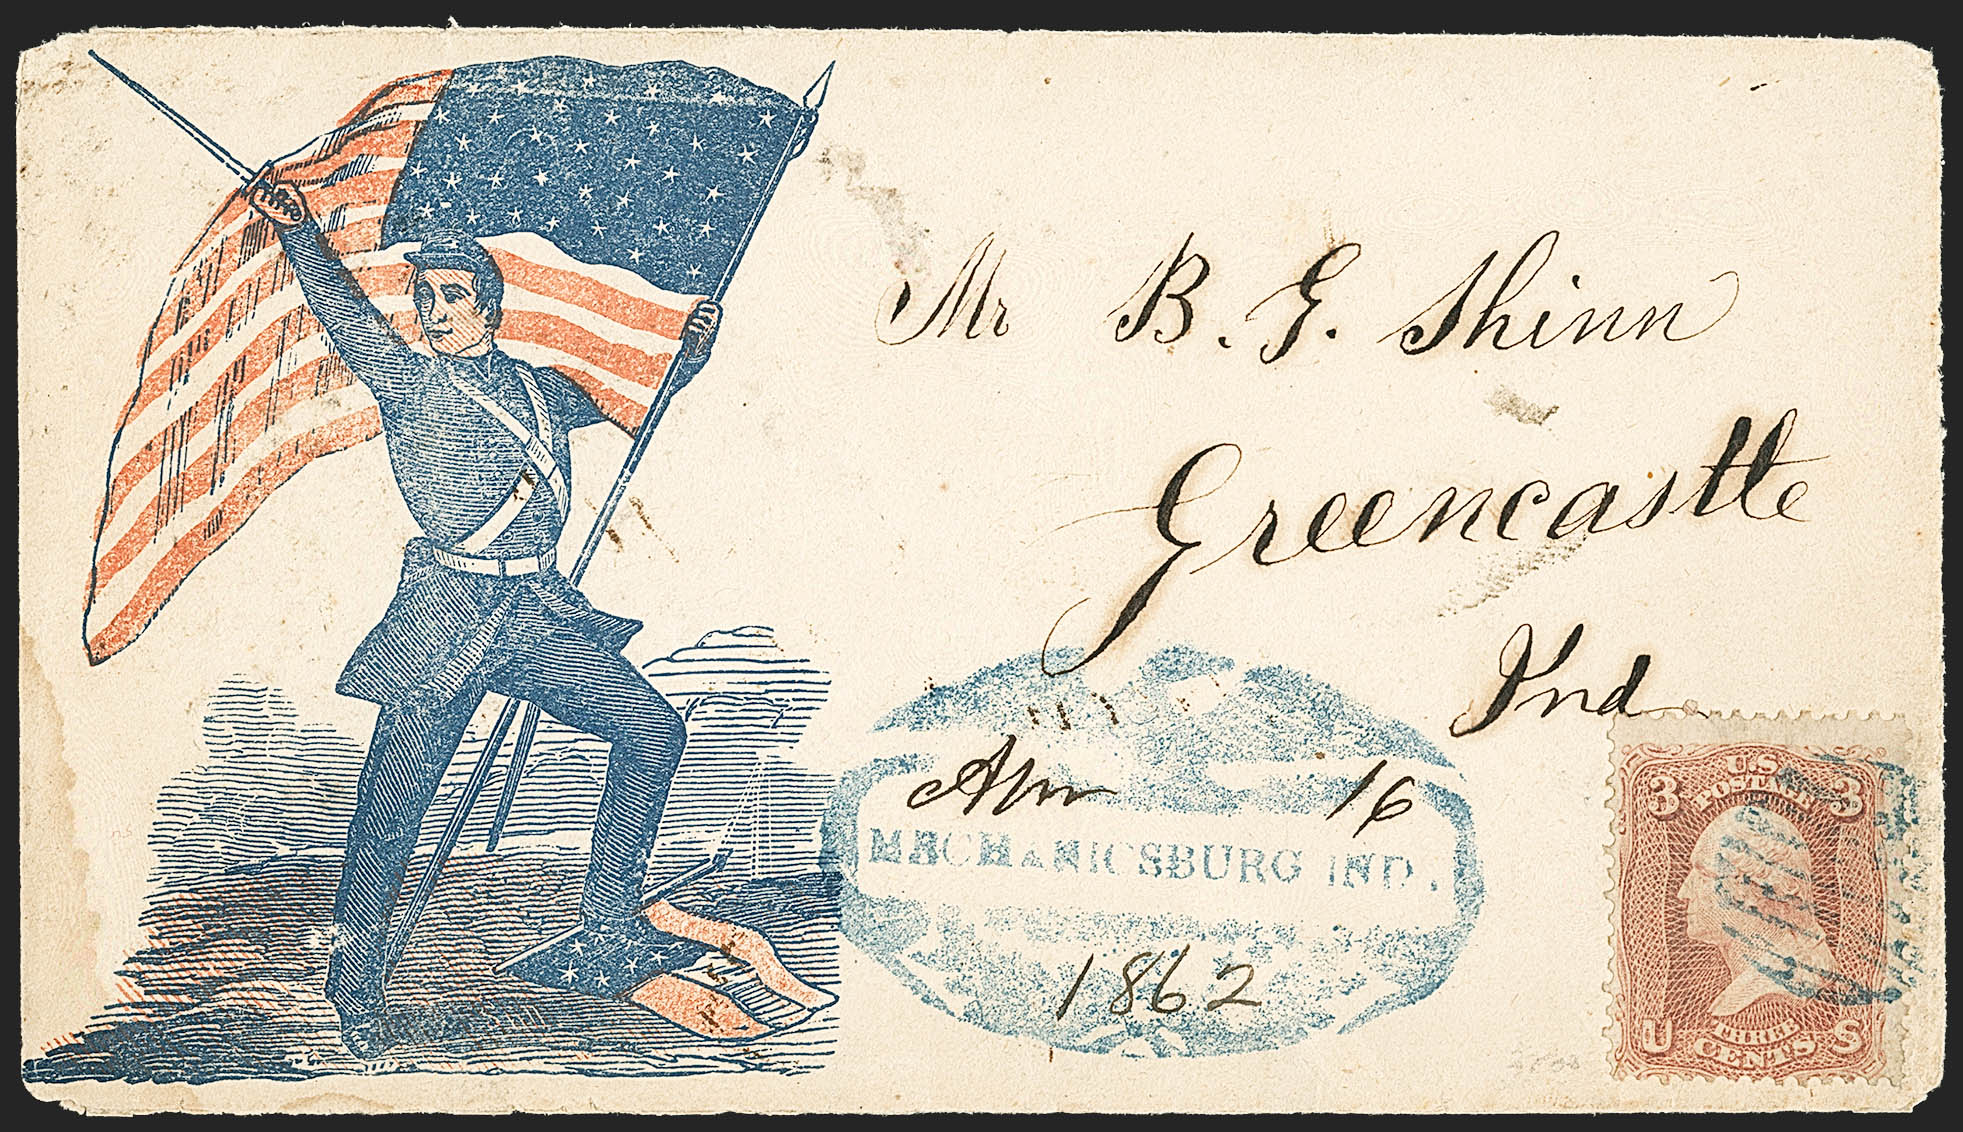 Mr B. G. Shinn
Greencastle
Ind
Apr 16
MECHANICSBURG IND.
1862
U.S.
POSTAGE
3 3
THREE
CENTS
U S